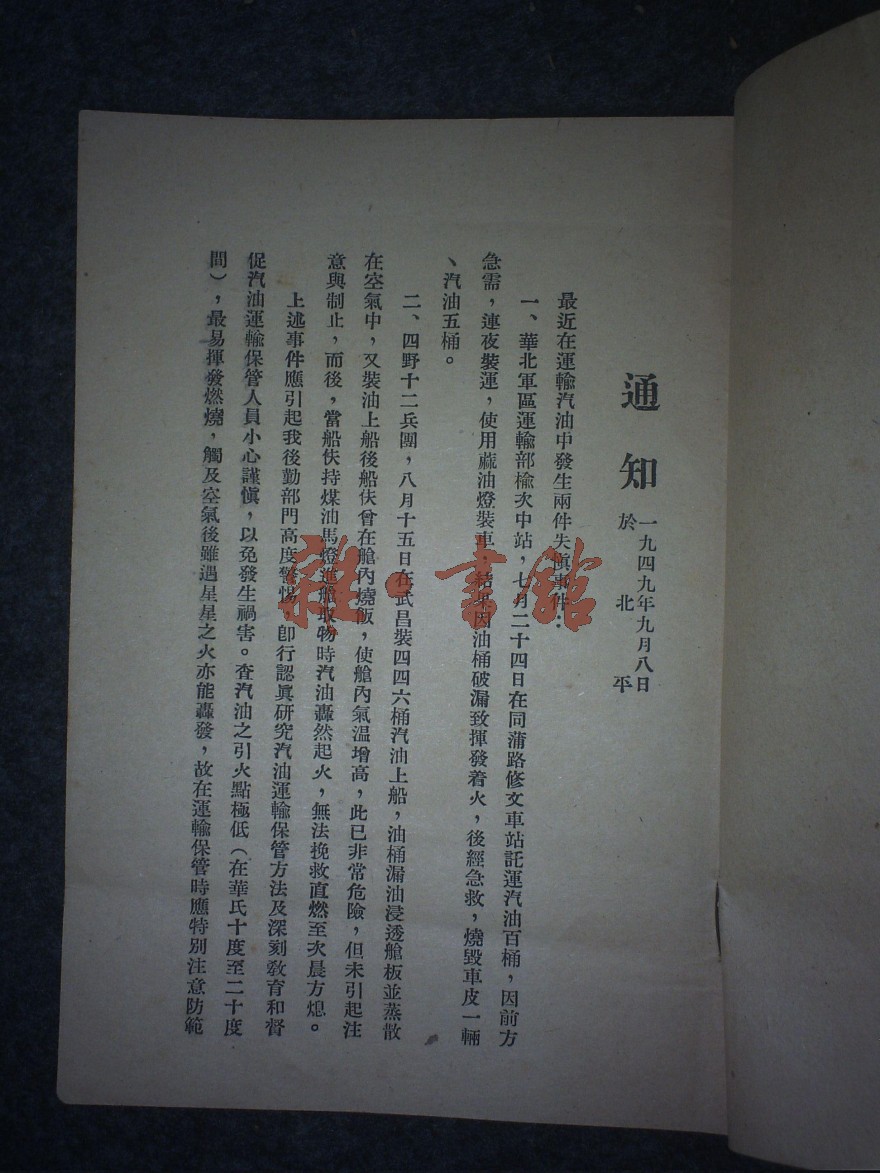 通知
一九四九年九月八日
於北平
最近在運輸汽油中發生兩件失愼事件：
一、華北軍區運輸部楡次中站，七月二十四日在同蒲路修文車站託運汽油百桶，因前方
急需，連夜裝運，使用蔴油燈裝車，結果因油桶破漏致揮發着火，後經急救，燒毀車皮一輛
、汽油五桶。
二、四野十二兵團，八月十五日在武昌裝四四六桶汽油上船，油桶漏油浸透艙板並蒸散
在空氣中，又裝油上船後船伕曾在艙內燒飯，使艙內氣温增高，此已非常危險，但未引起注
意與制止，而後，當船伕持煤油馬燈進艙取物時汽油轟然起火，無法挽救直燃至次晨方熄。
上述事件應引起我後勤部門高度警惕，卽行認眞研究汽油運輸保管方法及深刻敎育和督
促汽油運輸保管人員小心謹愼，以免發生禍害。查汽油之引火點極低（在華氏十度至二十度
間），最易揮發燃燒，觸及空氣後雖遇星星之火亦能轟發，故在運輸保管時應特别注意防範
雜·書館